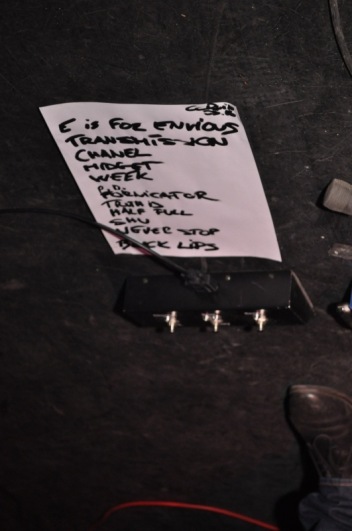 E is FOR ENVIOUS
TRANSMISSION
CHANEL
MIDGET
WEEK
FORNICATOR
TRUTH IS
HALF FULL
SHU
NEVER STOP
BLACK LIPS